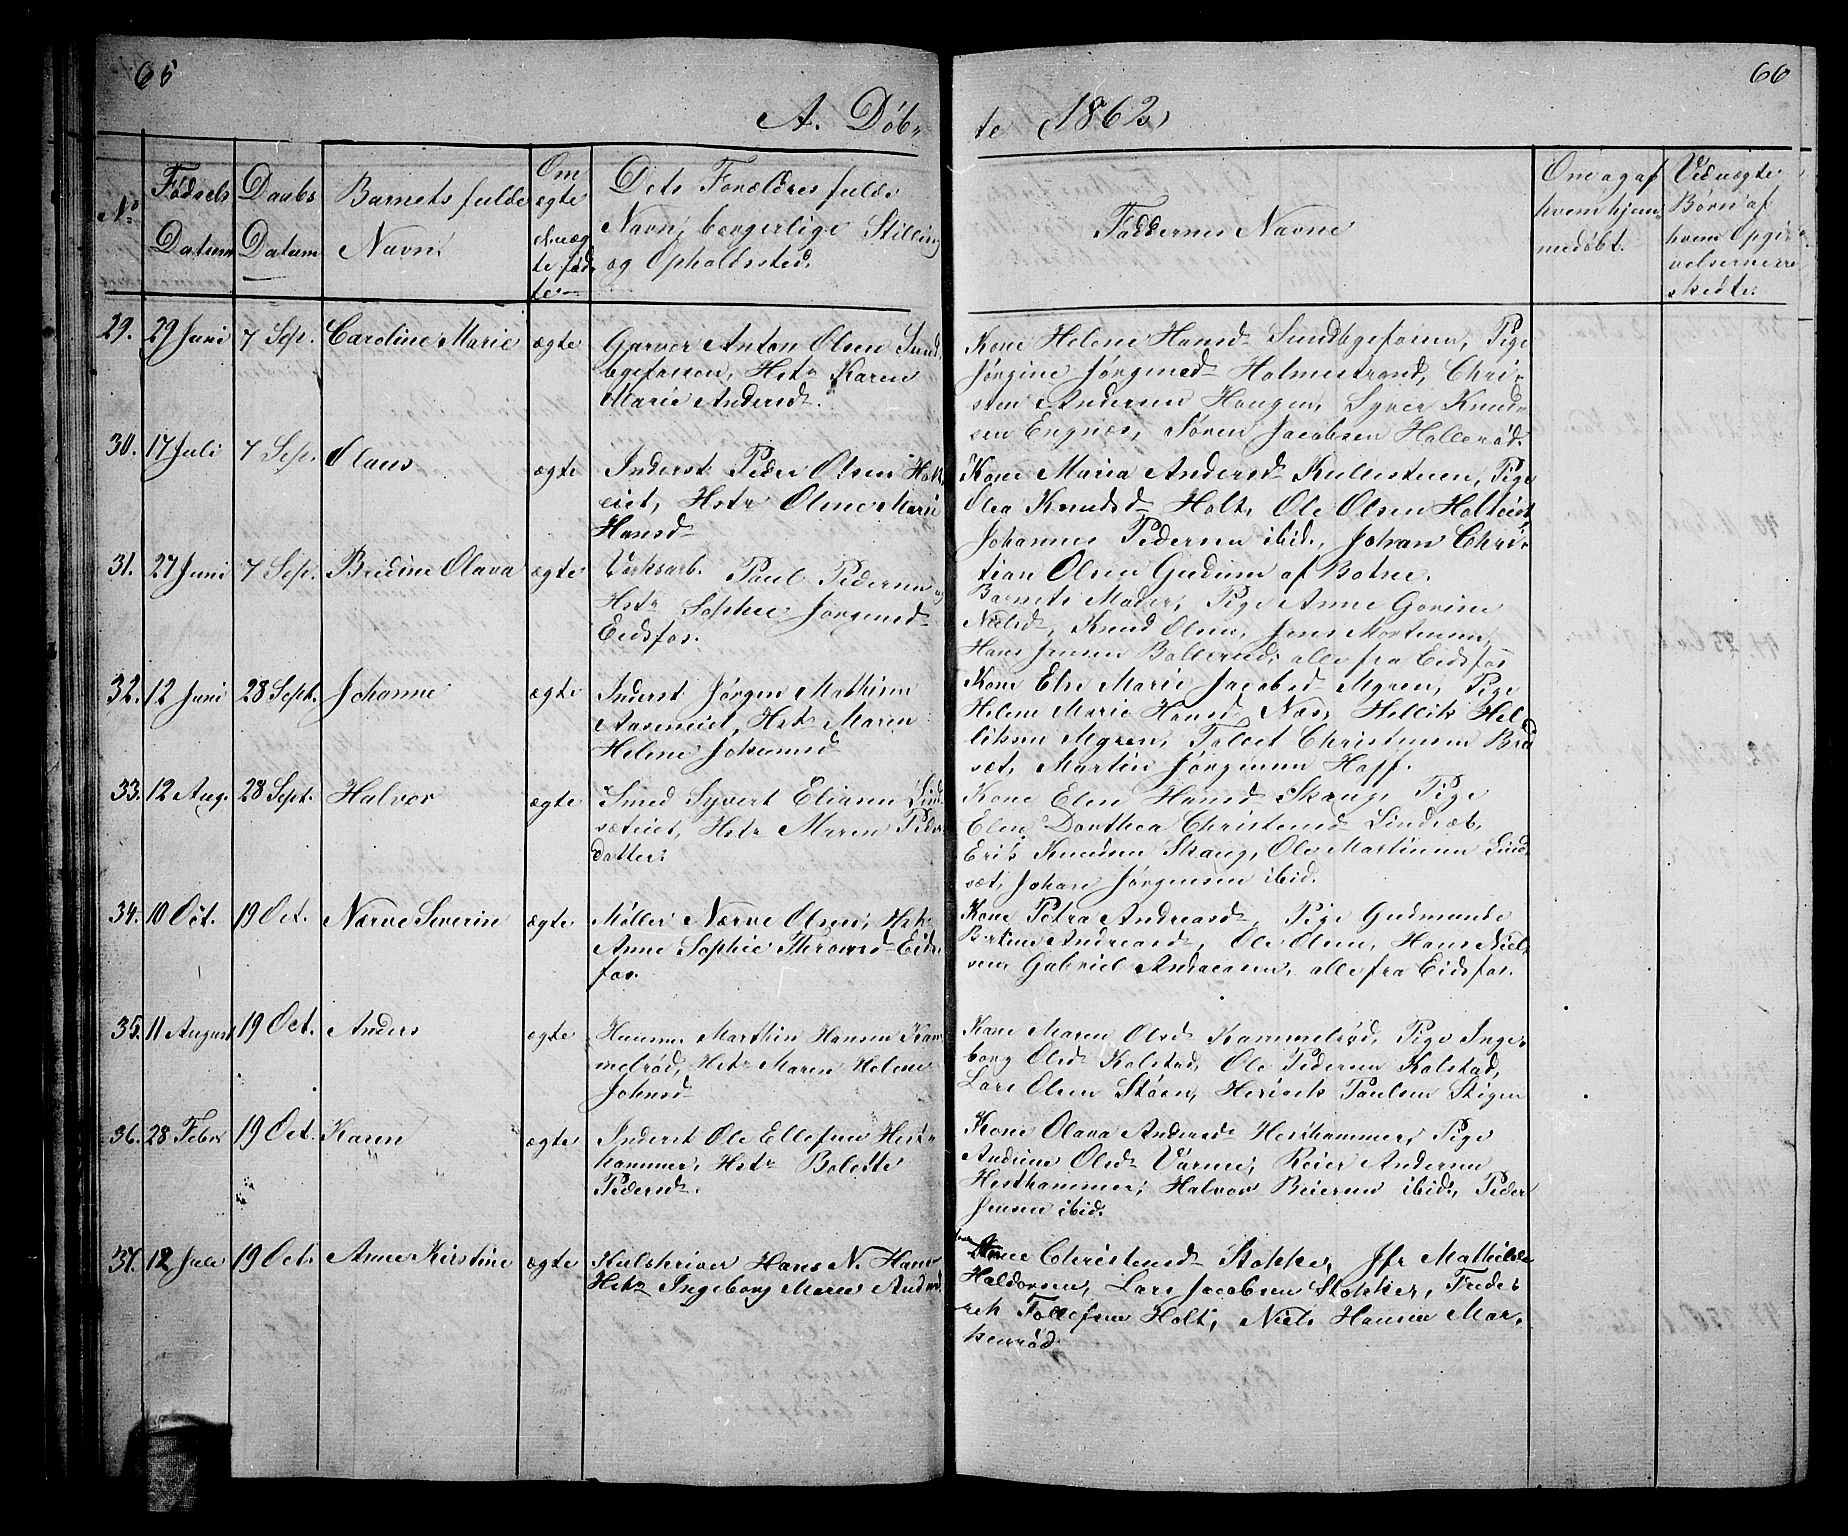 65
66
A. Døb-
te (1862)
No
Fødsels
Datum
Daabs
Datum
Barnets fulde
Navn.
Om
ægte
el. uæg
te fød
te.
Dets Forældres fulde
Navn, borgerlige Stilling
og Opholdssted.
Faddernes Navne
Om og af
hvem hjem
medøbt.
Ved uægte
Børn af
hvem Opgi
velserne ere
skedte.
29. 29 Juni 7 Sep. Caroline Marie ægte
Garver Anton Olsen Sund
bgefossen, Hstr Karen
Marie Andersd.
Kone Helene Hansd Sundbgefossen, Pige
Jørgine Jørgensd Holmestrand, Chri-
sten Andersen Haugen, Syver Knud
sen Engnæs, Søren Jacobsen Hallerød.
30. 17 Juli 7 Sep. Olaus ægte
Inderst Peder Olsen Holt
eiet, Hstr Oline Marie
Hansd
Kone Maria Andersd Kullesteen, Pige
Olea Knudsd Holt, Ole Olsen Holteiet
Johannes Pedersen ibid., Johan Chri-
tian Olsen Gudum af Botne.
31. 27 Juni 7 Sep. Bredine Olava ægte
Værksarb. Paul Pedersen og
Hstr Sophie Jørgensd
Eidsfos.
Barnets Moder, Pige Anne Gorine
Nielsd, Knud Olsen, Jens Mortensen,
Hans Jensen Bollerud, alle fra Eidsfos
32. 12 Juni 28 Sept. Johanne ægte
Inderst Jørgen Mathisen
Aaseneiet, Hstr Maren
Helene Johannesd
Kone Else Marie Jacobsd Myren, Pige
Helene Marie Hansd Næs, Hellik Hel
liksen Myren, Tollet Christensen Bud
sæt, Martin Jørgensen Hoff.
33. 12 Aug. 28 Sept. Halvor ægte
Smed Syvert Eliasen Lind
sæteiet, Hstr Maren Peders
datter.
Kone Elen Hansd Skaug, Pige
Elen Dorthea Christensd Lindsæt,
Erik Knudsen Skaug, Ole Martinsen Lind
sæt, Johan Jørgensen ibid.
34. 10 Oct. 19 Oct. Nærve Severin ægte
Møller Nærve Olsen, Hstr
Anne Sophie Thronsd Eids
fos.
Kone Petra Andreasd, Pige Gudmunde
Bertine Andreasd, Ole Olsen, Hans Niel
sen, Gabriel Andreasen, alle fra Eidsfos.
35. 11 August 19 Oct. Anders ægte
Huusm. Marthin Hansen Kam
melrød, Hstr Maren Helene
Johnsd
Kone Maren Olsd Kammelrød, Pige Inge-
borg Olsd Kolstad, Ole Pedersen Kolstad,
Lars Olsen Støen, Henrik Paulsen Stigen
36. 28 Febr 19 Oct. Karen ægte
Inderst Ole Ellefsen Hest
hammer, Hstr Bolette
Pedersd.
Kone Olava Andersd Hesthammer, Pige
Andrine Olsd Værme, Reier Andersen
Hesthammer, Halvor Reiersen ibid, Peder
Jensen ibid.
37. 12 Juli 19 Oct. Anne Kirstine ægte
Kulskriver Hans N. Hans
Hstr Ingeborg Marie Andersd
Anne Christensd Stokke, Jfr Mathilde
Haldorsen, Lars Jacobsen Stokke, Frede-
rek Tollefsen Holt, Niels Hansen Mar-
kenrød